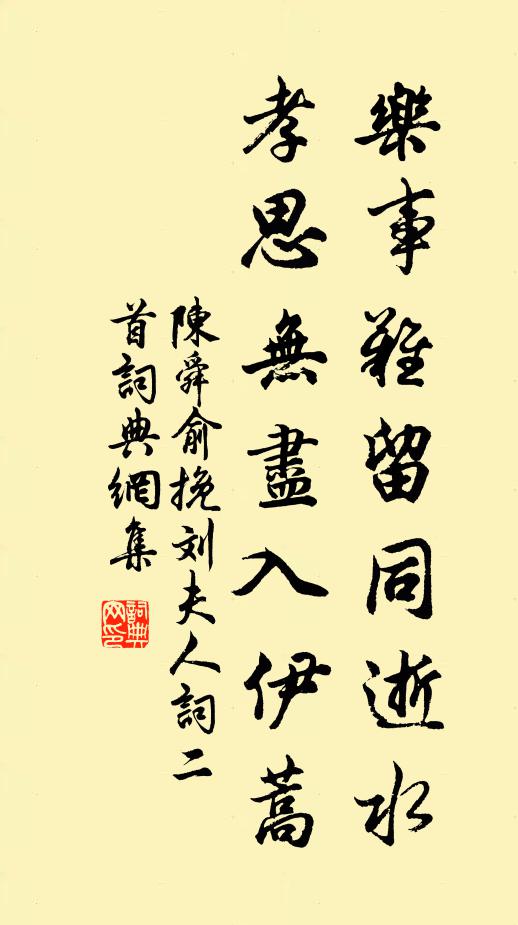 樂事難留同逝水
孝思無盡入伊蒿
陳舜俞挽刘夫人詞二
首詞典網集
詞典
网印